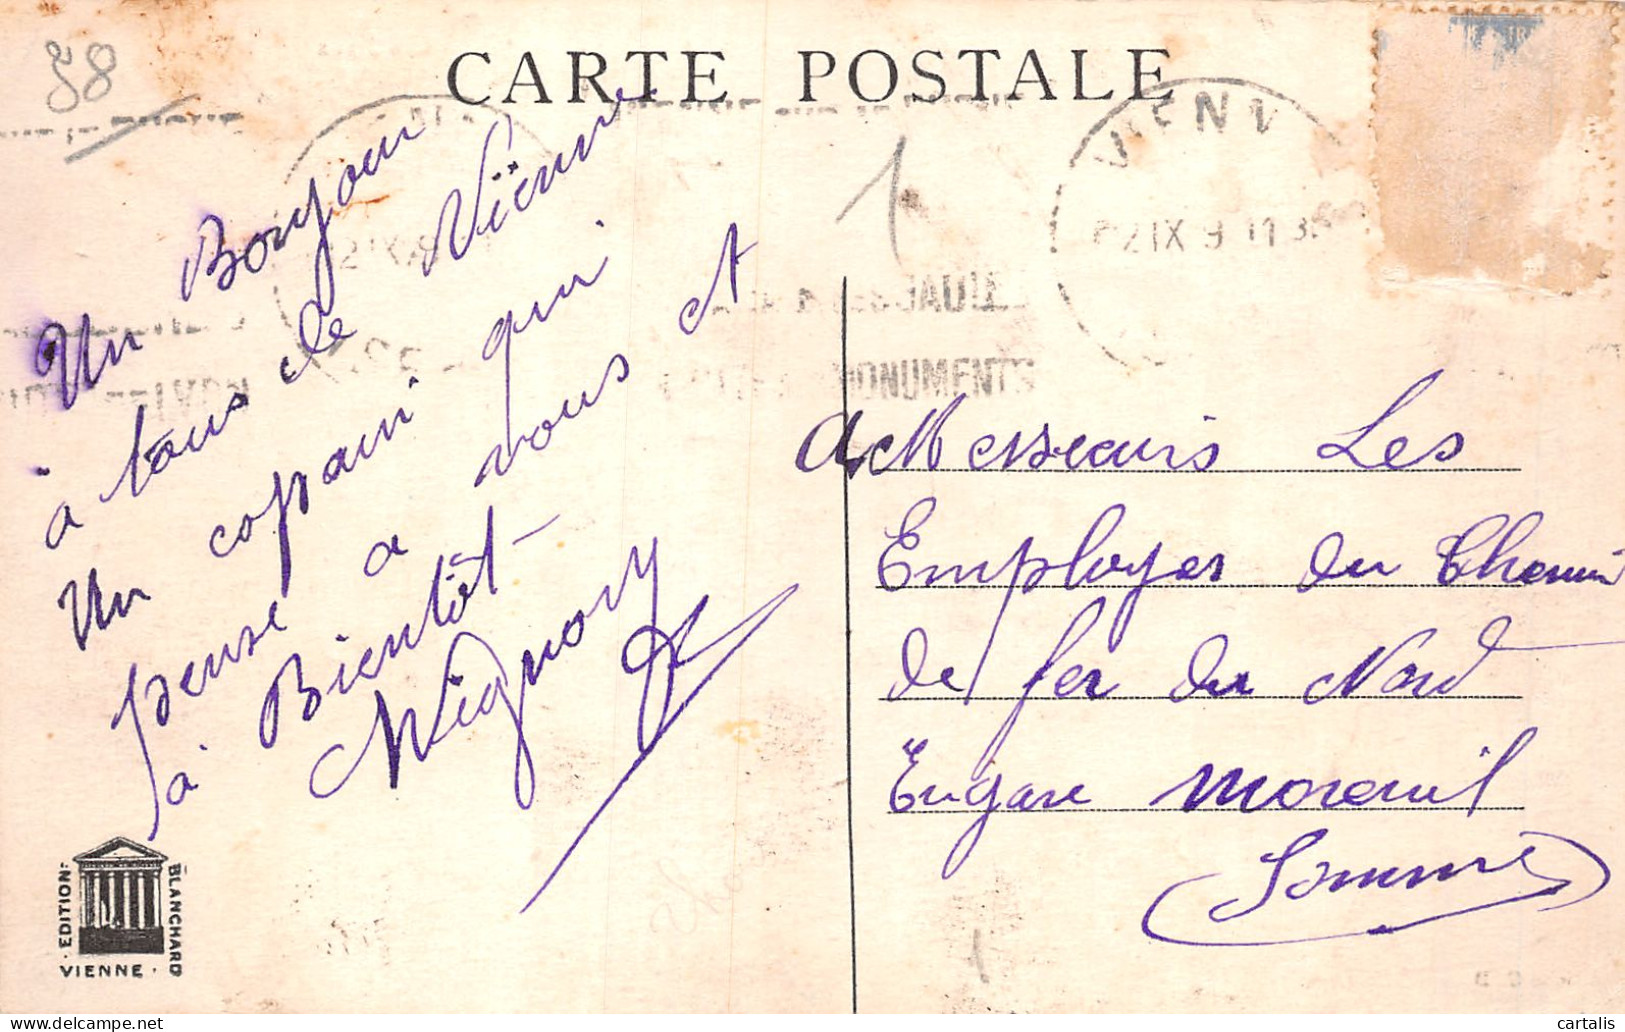 58
CARTE POSTALE
1
Un Bonjour
à tous de Vienne
Un copain qui
pense a vous et
à Bientôt
Mignory
VIENN
21 IX 9 11 3
JAULE
MONUMENTS
a Messeurs Les
Employer du Chemin
de fer du Nord
En gare Moreuil
(Somme)
EDITION
BLANCHARD
VIENNE
cartalis